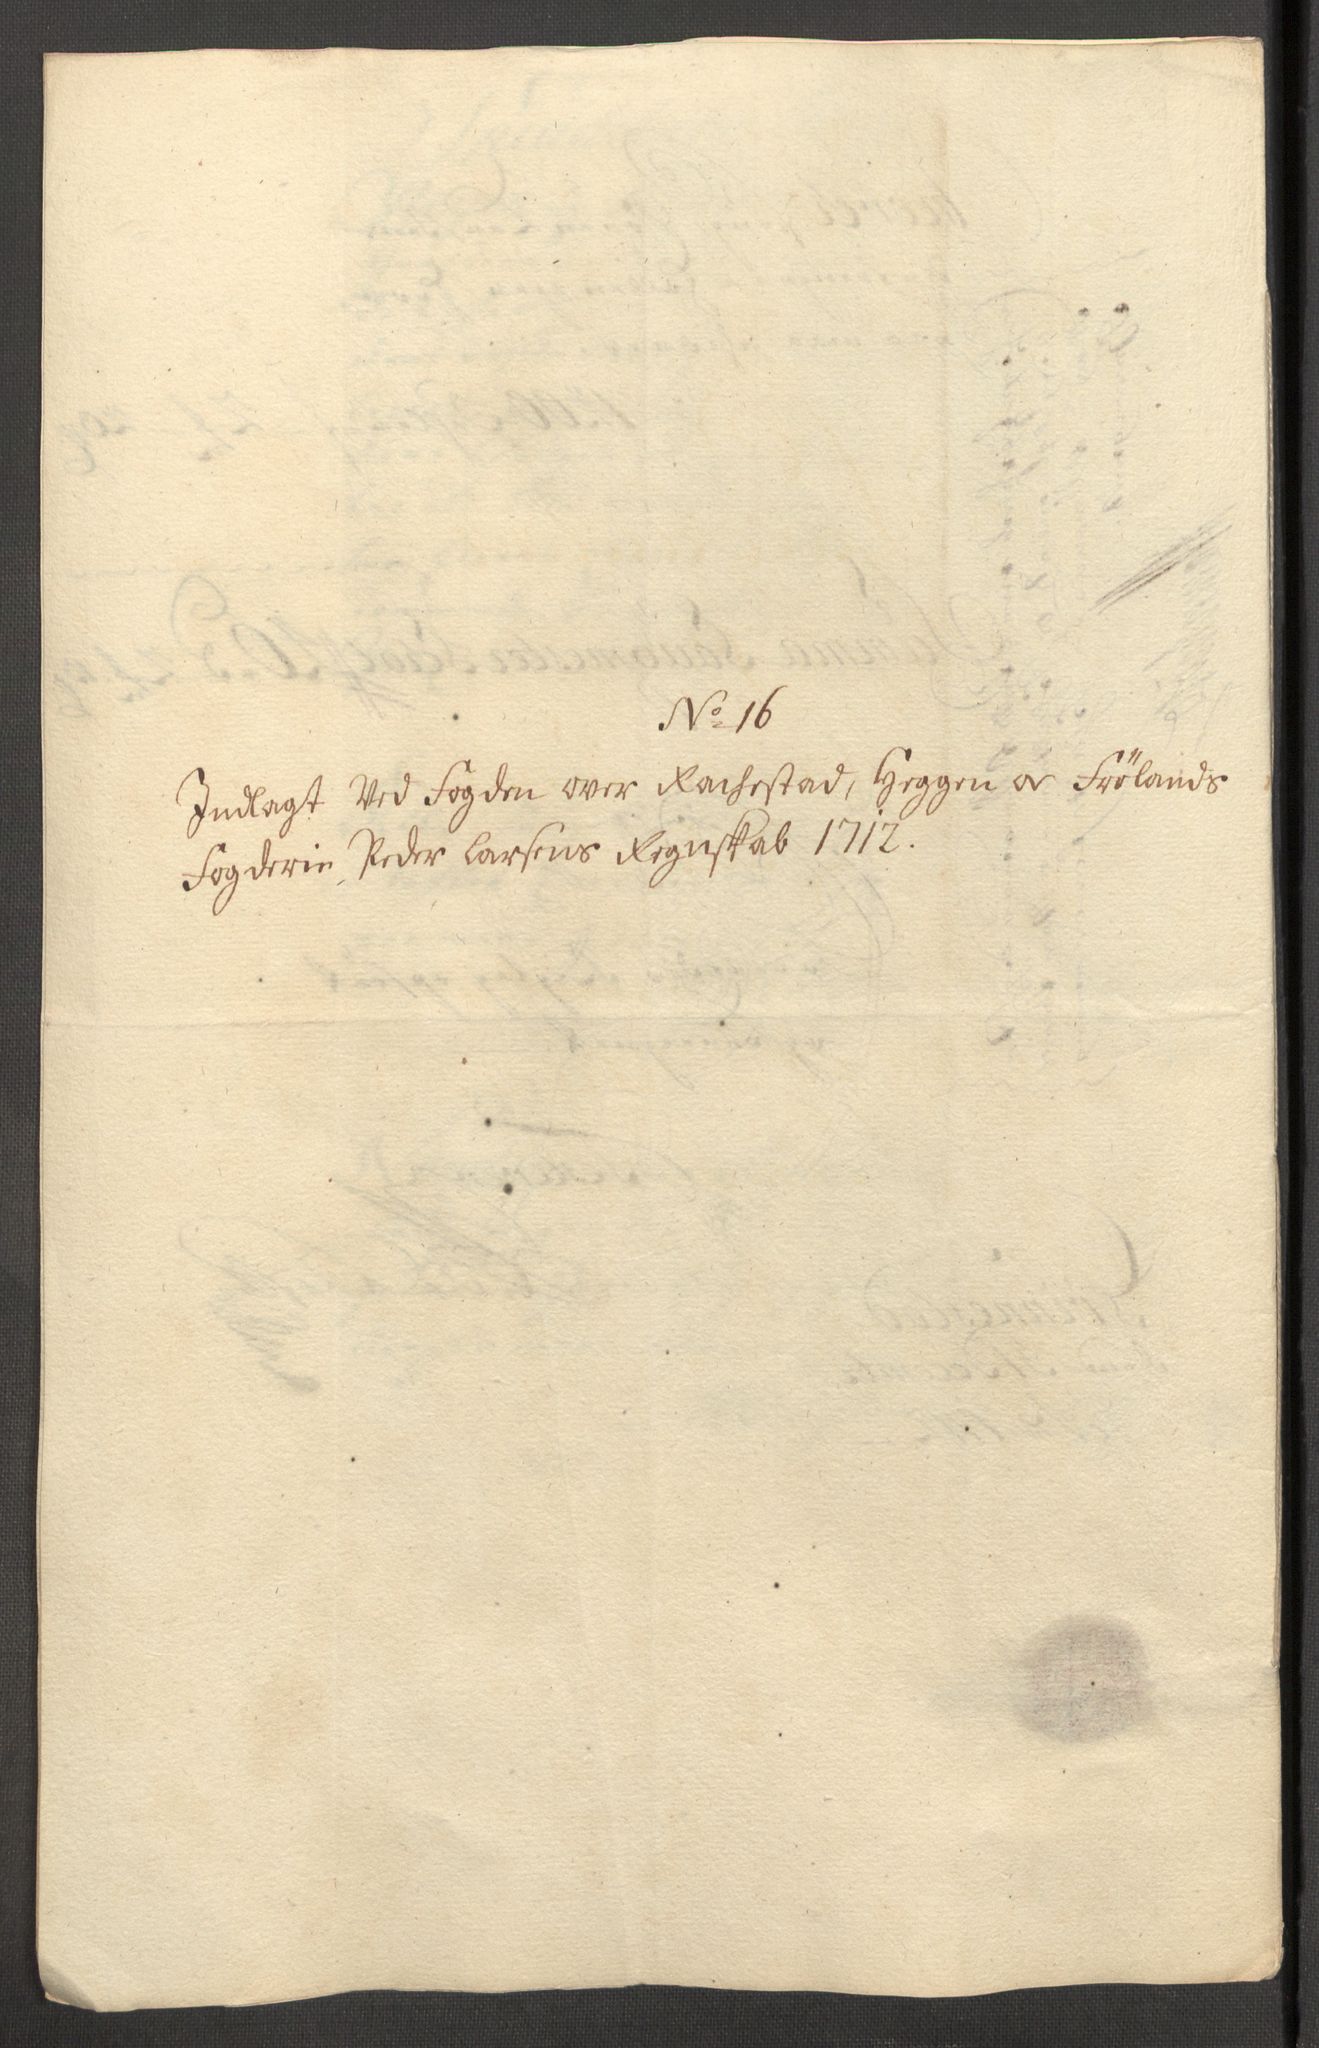 No 16
Indlagt Ved Fogden over Rachestad, Heggen oc Frölands
Fogderie, Peder Larsens Regnskab 1712.